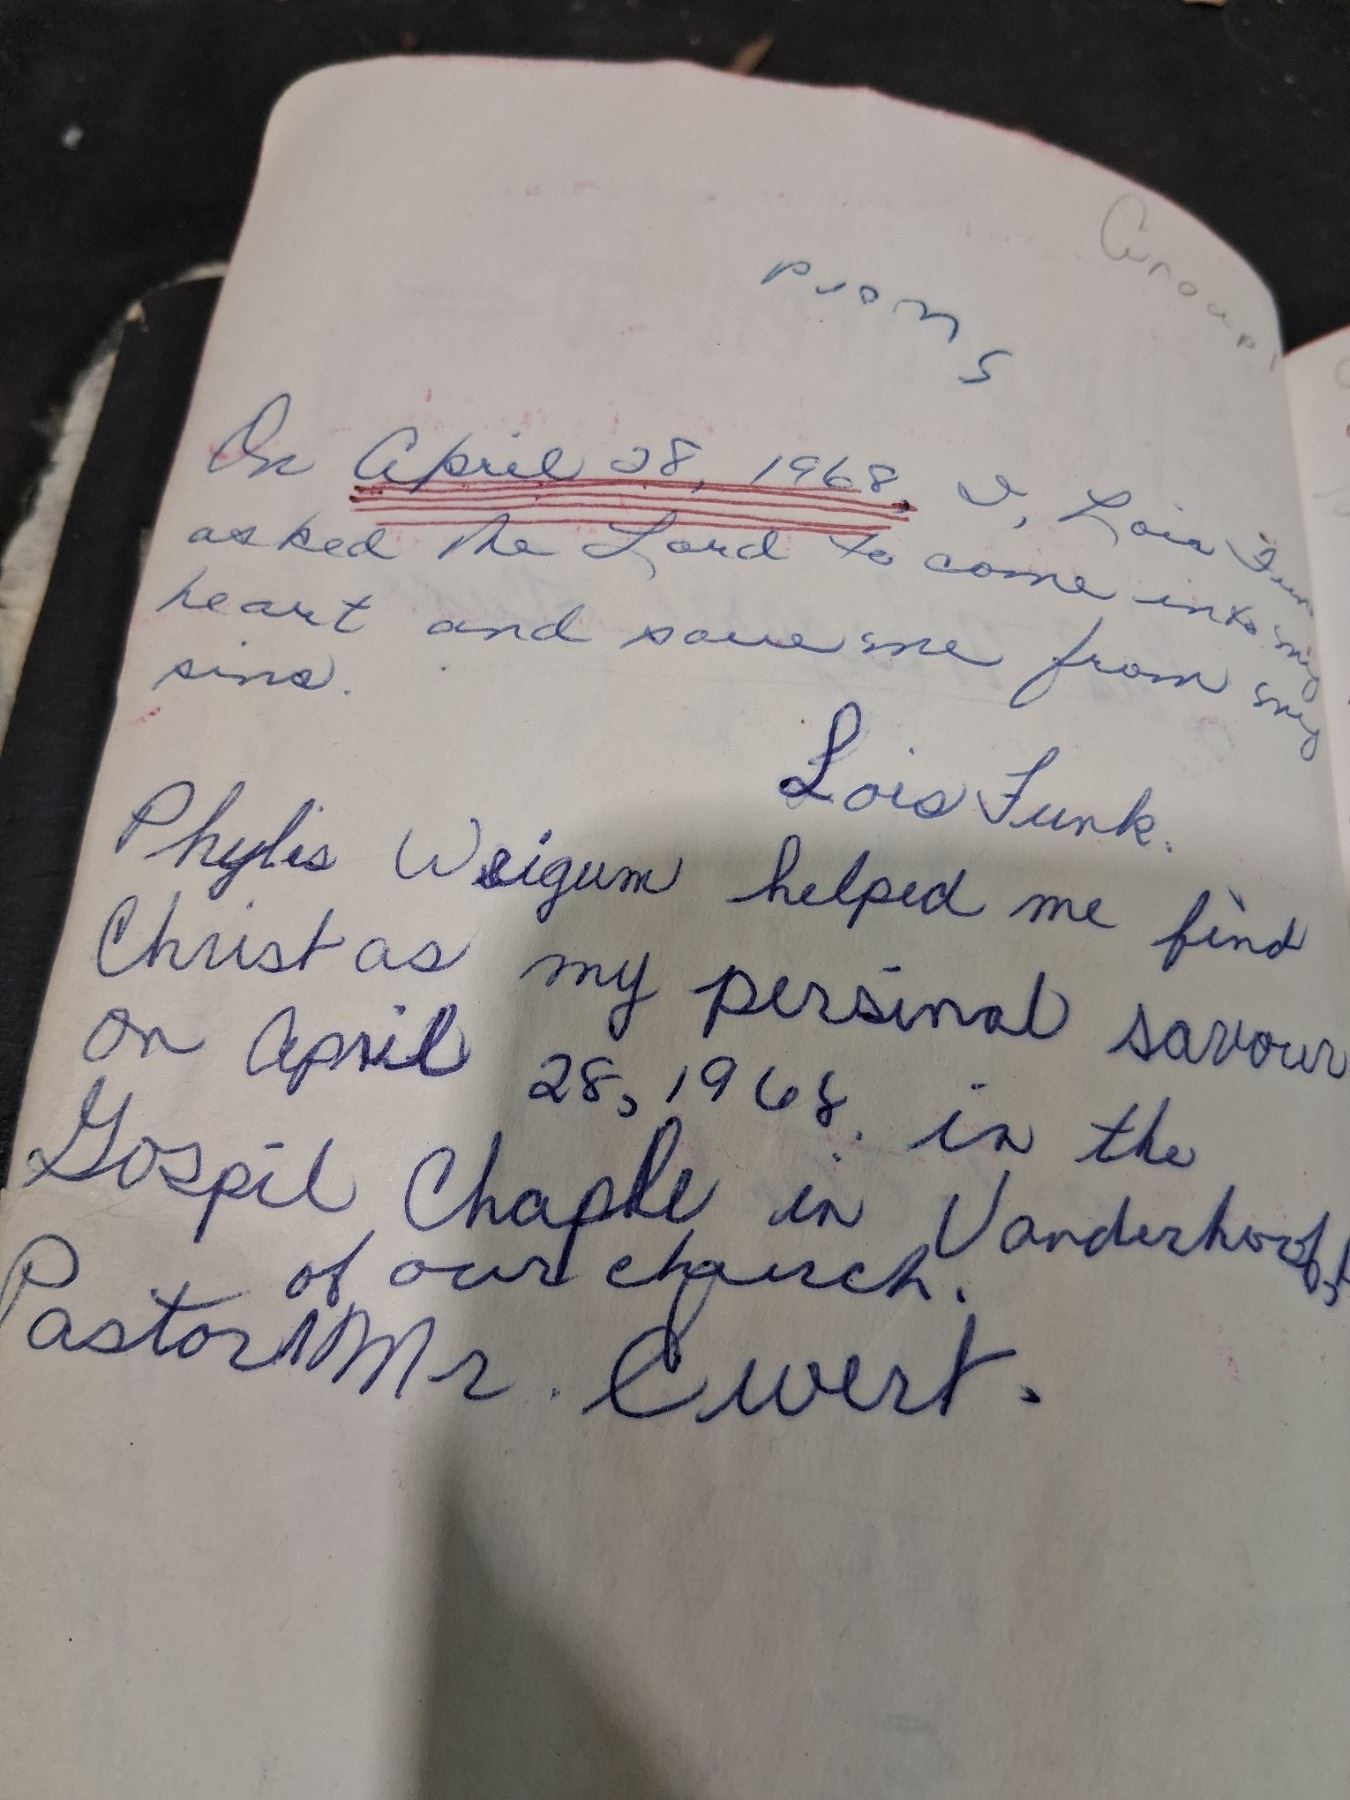 Group
On April 28, 1968, I, Lois Fun
asked the Lord to come into my
heart and save me from my
sins.
Lois Funk.
Phylis Weigum helped me find
Christ as my persinal savour
on April 28, 1968. in the
Gospil Chaple in Vanderhoof,
of our church.
Pastor Mr. Ewert.